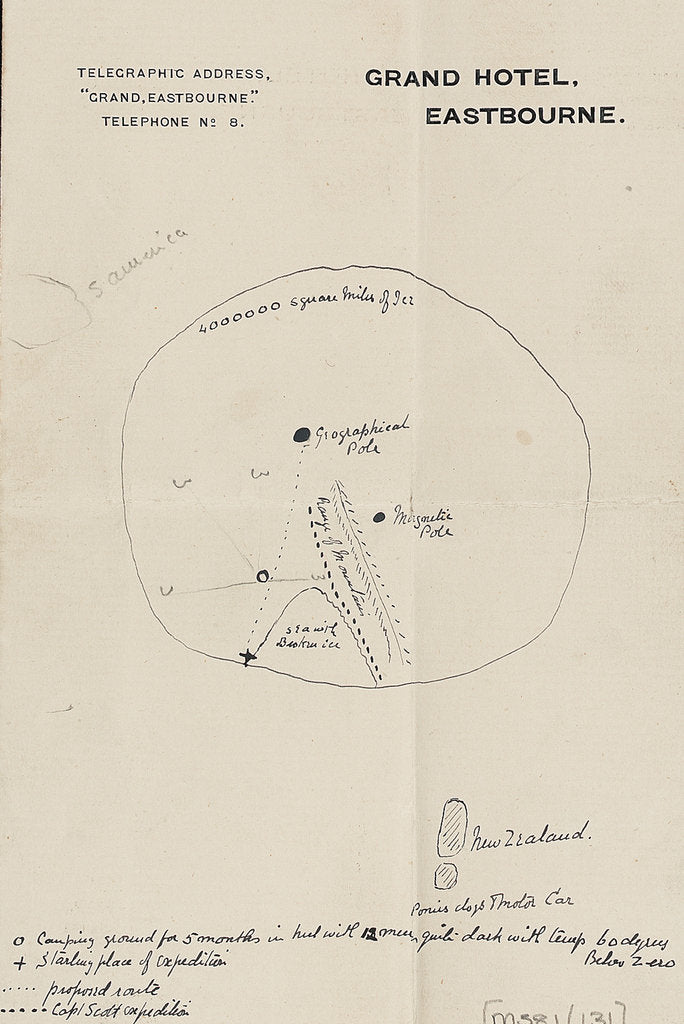 TELEGRAPHIC ADDRESS,
"GRAND, EASTBOURNE."
TELEPHONE Nº 8.
GRAND HOTEL,
EASTBOURNE.
S america
4000000 square Miles of Ice
Geographical
Pole
Magnetic
Pole
Range of Mountains
sea with
Broken ice
New Zealand.
Ponies dogs Motor Car
o Camping ground for 5 months in hut with 12 men, quite dark with temp 60 degrees
Below Zero
+ Starting place of Expedition
..... proposed route
..... Capt Scott expedition
[MS81/131]